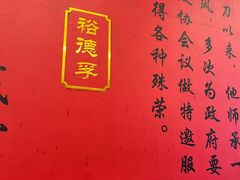 刀以来，他师承一
风，多次为政府要
协会议做特邀服
得各种殊荣。
裕德孚